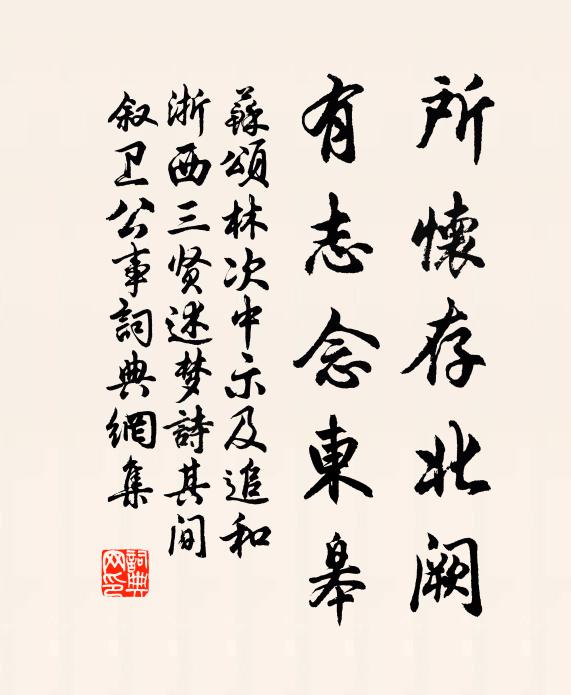 所懷存北阙
有志念東皋
蘇頌林次中示及追和
浙西三贤述梦詩其间
叙卫公事詞典網集
詞典网印